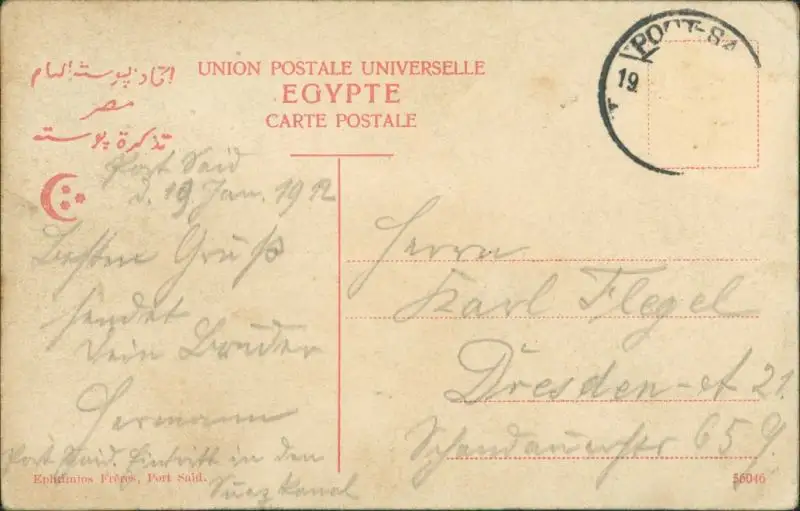 اتحاد پوسته العام
مصر
تذكرة پوسته
UNION POSTALE UNIVERSELLE
EGYPTE
CARTE POSTALE
PORT-SA
19
Port Said
d. 19 Jan. 1912
Besten Gruß
sendet
Dein Bruder
Hermann
Port Said. Eintritt in den
Suez Kanal
Herrn
Karl Flegel
Dresden-A 21.
Schandauerstr 65
Ephtimios Frères, Port Said.
56046